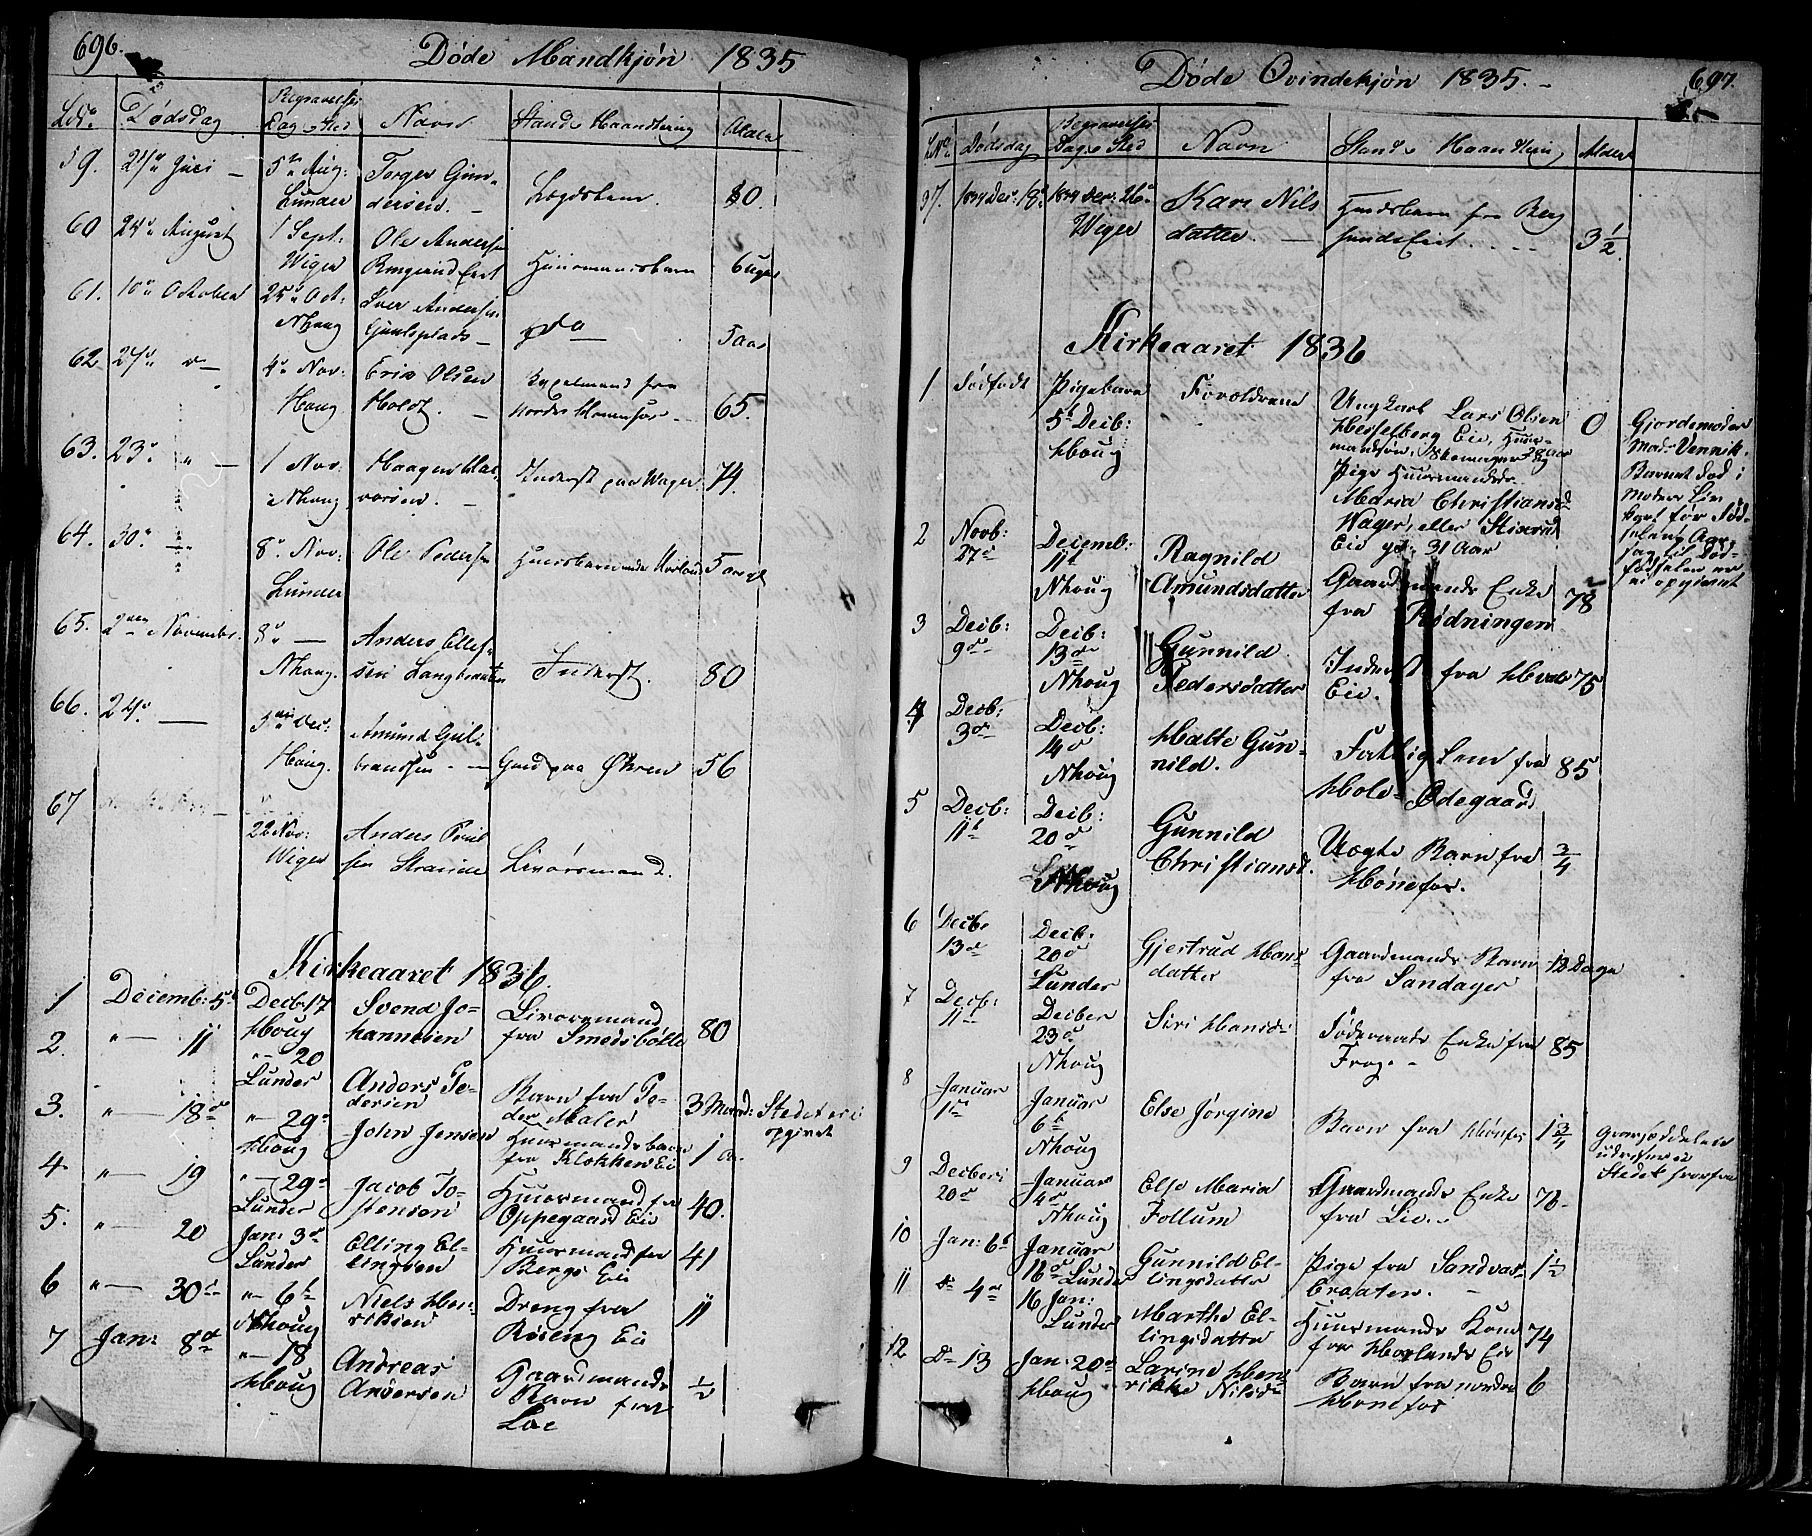 696.
Døde Mandkjøn 1835
Dødsdag
Begravelses
Dag & Sted
Navn
Stand & Haandtering
Alder
59.
5te Aug:
Lunder
Torger Gun-
dersen.
Lægdslem
80.
60
24de August
1 Sept:
Wiger
Ole Andersen
Ringerud Eiet
Huusmandsbarn
6 uger
61.
10de October
25de Oct:
Nhoug
Iver Andersen
do
5 aar
62
27de
4de Nov:
Houg
Eric Olsen
Holdt.
65.
63.
23de
1 Nov:
Nhoug
Haagen Hal-
vorsen.
Inderst paa Wager
74.
64.
30de
8de Nov:
Lunder
Ole Pedersen
65.
2den November
8de
Nhoug.
Anders Ellef-
sen Langbraaten
Inderst.
80
66.
24de
Houg.
Amund Gul-
brandsen
Gmd paa Øhren
56
67
22 Nov:
Wiger
Anders Poul-
sen Strande
Livørsmand.
Kirkeaaret 1836.
1
Decemb: 5te
Decb: 17
Houg
Svend Jo-
hannesen
Livørsmand
fra Smedsbøle
80
2.
" 11
" 20
Lunder
Anders Pe-
dersen
Barn fra Pe-
der Maler
3 Maand:
Stedet ei
opgivet
3.
" 18de
" 29de
Houg
John Jensen
Huusmandsbarn
fra Klokkers Ei
1 Aar
4.
" 19
" 29de
Lunder
Jacob To-
stensen
Huusmand fra
Oppegaard Eie
40.
5.
" 20
Jan: 3de
Lunder
Elling El-
lingsen
Huusmand fra
Bergs Eie
41
6
" 30de
" 6te
Nhoug
Niels Hen-
riksen
Dreng fra
Røseng Ei
11
7
Jan: 8de
" 18
Houg
Andreas
Andersen
Gaardmands
Barn fra
Loe
1/2
697.
Døde Qvindekjøn 1835.
Dødsdag
Begravelses
Dag & Sted
Navn
Stand & Haandtering
Alder
37.
1834 Der. 18de
1834 Der: 26de
Wiger
Kari Nils
datter.
Huusbarn fra Berg
sunds Eiet
3 1/2
Kirkeaaret 1836
1
Dødfødt
Pigebarn
5te Decb:
Houg
Forældrene
Ungkarl Lars Olsen
Hesselberg Eie, Huus-
mandsøn, Skomager 28 Aar
Pige Huusmandsd.
Maria Christiansd.
Wager, eller Stixrud
Eie 31 Aar
0
Gjordemoder
Mad: Vennik.
Barnet død i
Moders Liv
kort før Fød-
selen, Aar-
sag til Død-
fødselen er
ei opgivet
2
Novb:
27de
Decemb:
11te
Nhoug
Ragnild
Amundsdatter
Gaardmands Enke
fra Rødningen
78
3
Decb:
9de
Decb:
13de
Nhoug
Gunnild
Pedersdatter
Inderst fra Hval
Eie.
75
4
Decb:
3de
Decb:
14de
Nhoug
Malte Gun-
nild.
Fattiglem fra
Hole-Ødegaard
85
5
Decb:
11te
Decb:
20de
Nhoug
Gunnild
Christiansd.
Uægte Barn fra
Hønefos.
3/4
6
Decb.
13de
Decb.
20de
Lunder
Gjertrud Hans-
datter
Gaardmands Barn
fra Sandager
12 Dage
7
Decb:
11te
Decber
23de
Nhoug
Siri Hansd.
Føderaads Enke fra
Frog.
85
8
Januar
1ste
Januar
6te
Nhoug
Else Jørgine
Barn fra Hønefos
1 3/4
Gravseddelen
udviser ei
Stedet hvorfra
9
Decber:
20de
Januar
4de
Nhoug
Else Maria
Follum
Gaardmands Enke
fra Lie.
78
10
Jan: 6te
Januar
16de Lunder
Gunnild El-
lingsdatter
Pige fra Sandvas-
braaten.
1 1/2
11
Do 4de
16 Jan:
Lunder
Marthe El-
lingsdatter
Huusmands Kone
fra Horlands Eie
74
12
Do 13
Jan: 20de
Houg
Larine Hen-
rikke Nilsd.
Barn fra nordre
Hønefos
6